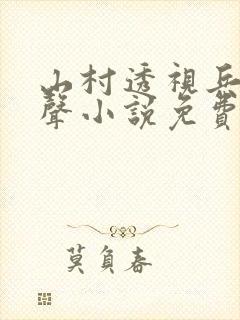 山村透視兵
聲小說免費
莫負春